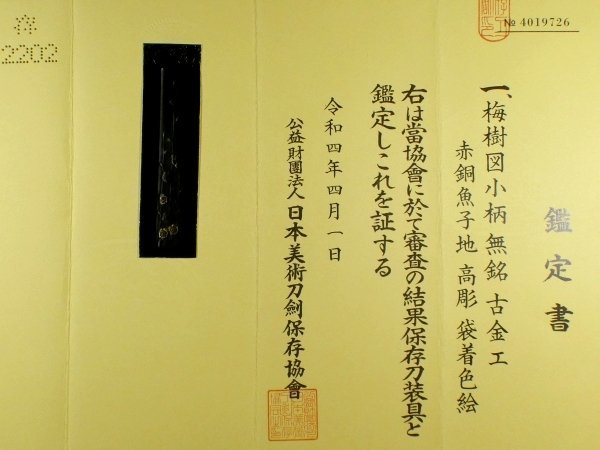 № 4019726
鑑定書
一、梅樹図小柄 無銘 古金工
赤銅魚子地 高彫 袋着色絵
右は當協會に於て審査の結果保存刀装具と
鑑定しこれを証する
令和四年四月一日
公益財團法人 日本美術刀劍保存協會
2202